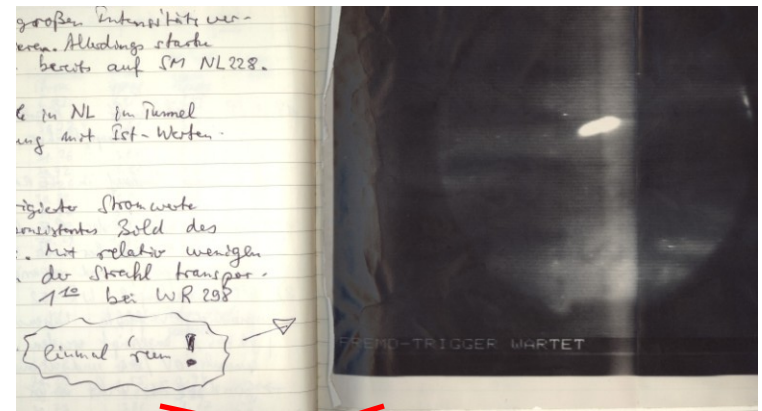 großen Intensität ver-
eren. Allerdings starke
bereits auf SM NL228.
in NL im Tunnel
ung mit Ist-Werten.
rigierte Stromwerte
konsistentes Bild des
. Mit relativ wenigen
der Strahl transpor-
bei WR 298
Einmal 'rum !
FREMD-TRIGGER WARTET